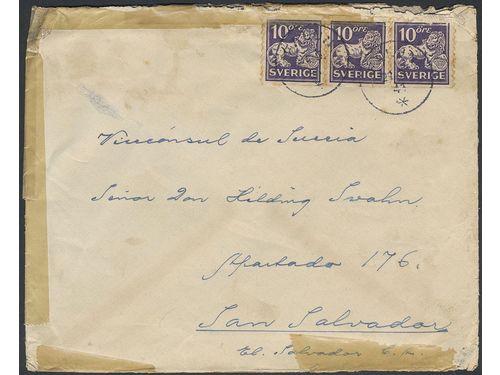 10 ÖRE 10 ÖRE 10 ÖRE
SVERIGE SVERIGE SVERIGE
Vicecónsul de Suecia
Señor Don Hilding Svahn.
Apartado 176.
San Salvador
El. Salvador C.A.